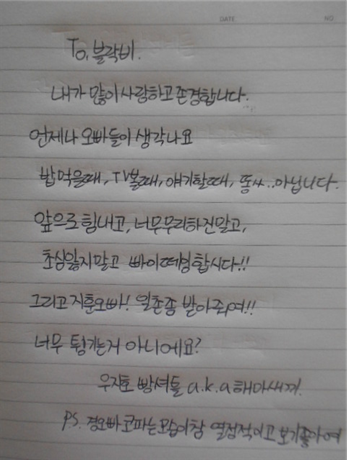 DATE NO
To, 블락비.
내가 많이 사랑하고 존경합니다.
언제나 오빠들이 생각나요
밥먹을때, TV볼때, 얘기할때, 똥싸..아닙니다.
앞으로 힘내고, 너무무리하진말고,
초심잃지말고 빠이떼형합시다!!
그리고 지훈오빠! 일촌좀 받아줘여!!
너무 튕기는거 아니에요?
우지호 빵셔틀 a.k.a 해마새끼.
PS. 경오빠 코파는모습이참 열정적이고 보기좋아여